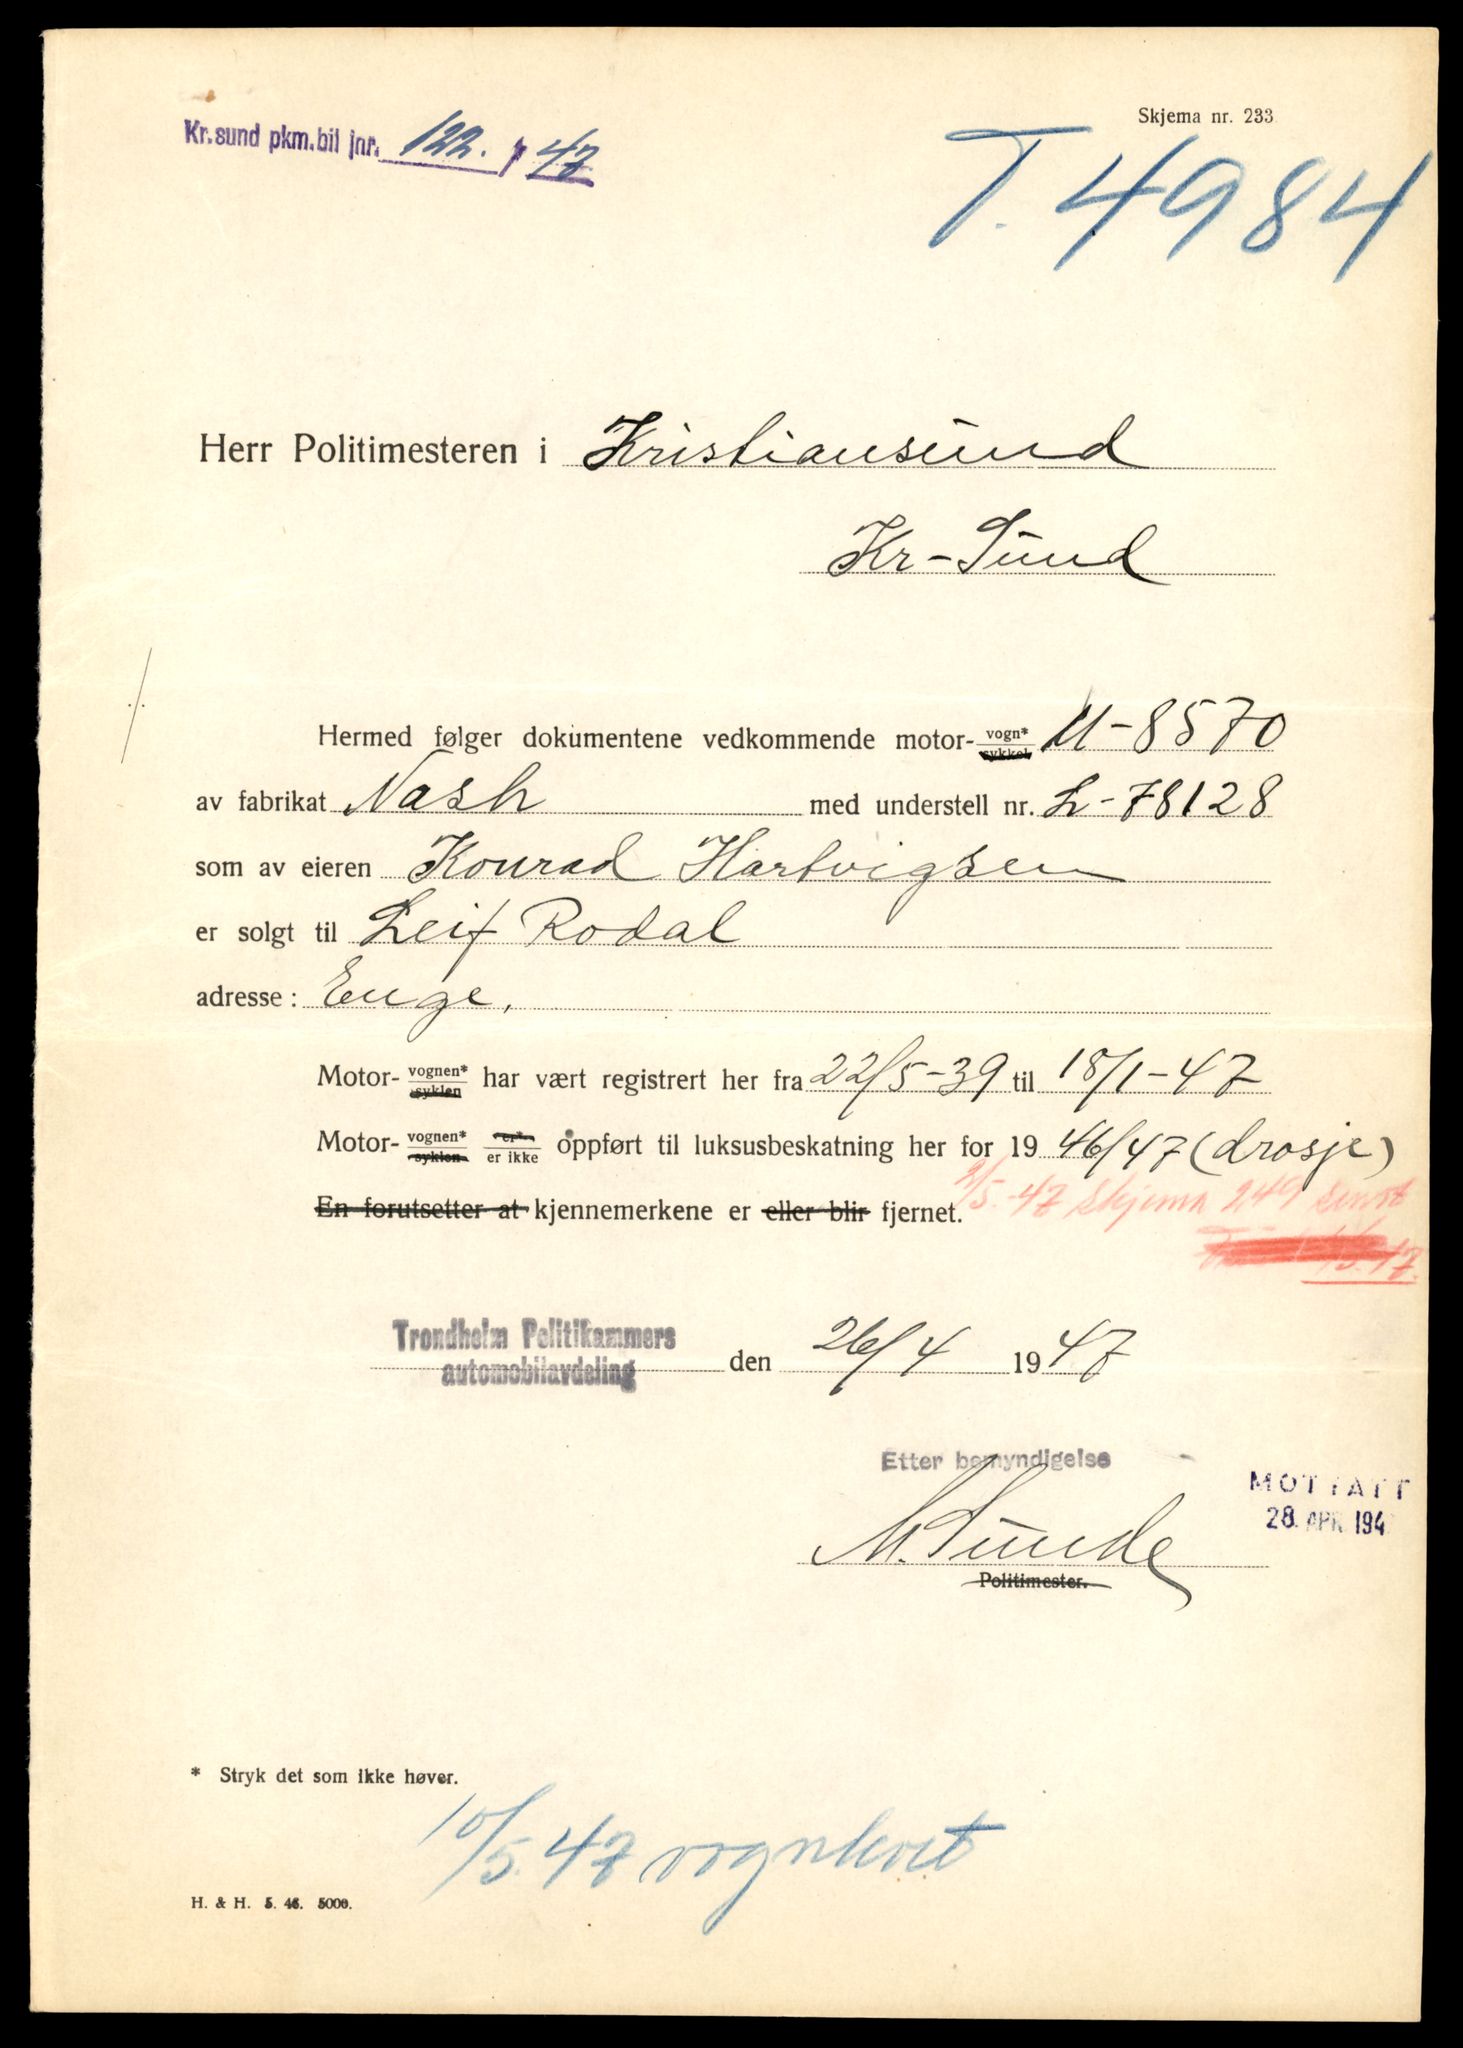 Skjema nr. 233
Kr.sund pkm.bil jnr. 122. / 47
T. 4984
Herr Politimesteren i Kristiansund
Kr-Sund
Hermed følger dokumentene vedkommende motor- vogn* sykkel U-8570
av fabrikat Nash med understell nr. L-78128
som av eieren Konrad Hartvigsen
er solgt til Leif Rodal
adresse: Enge.
Motor- vognen* syklen har vært registrert her fra 22/5-39 til 18/1-47
Motor- vognen* syklen er* er ikke oppført til luksusbeskatning her for 19 46/47 (drosje)
En forutsetter at kjennemerkene er eller blir fjernet.
2/5-47 Skjema 249 sendt
Trondheim Politikammers
automobilavdeling den 26/4 1947
Etter bemyndigelse
MOTTATT
28. APR. 194
M. Sunde
Politimester.
* Stryk det som ikke høver.
10/5.47 vognkort
H. & H. 5. 46. 5000.